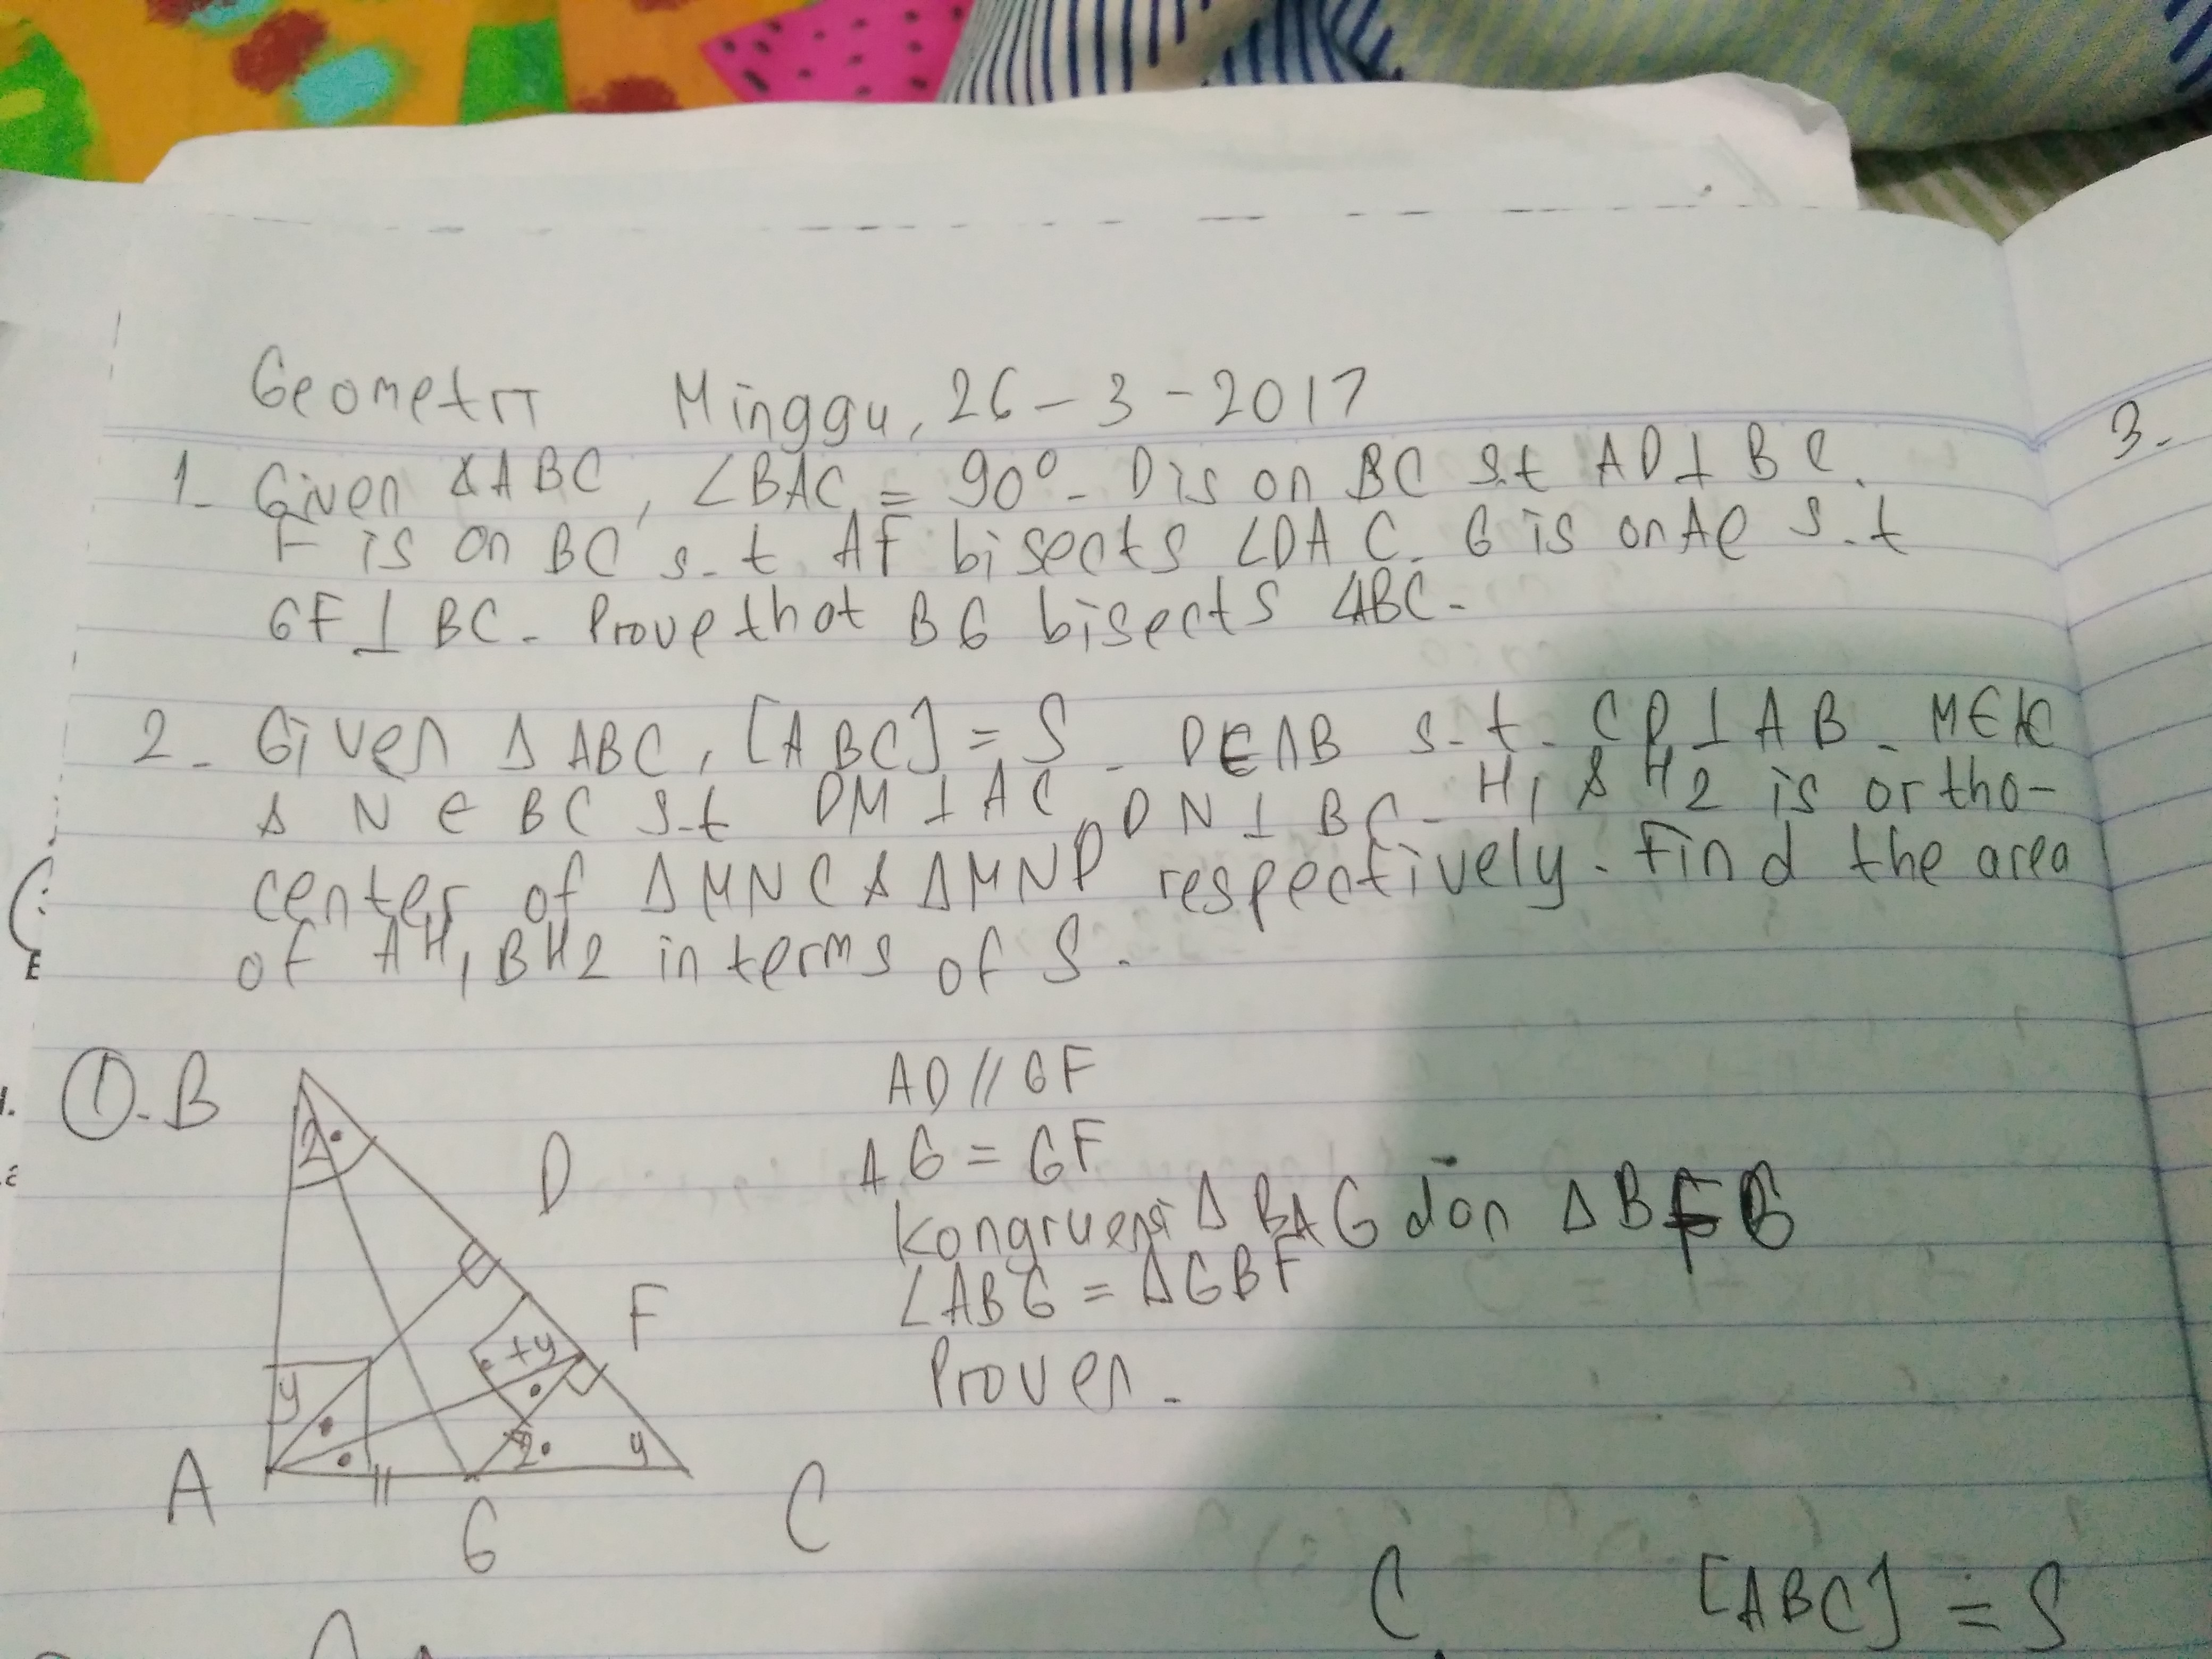 Geometri Minggu, 26-3-2017
3.
1. Given ∆ABC, ∠BAC = 90°. D is on BC s.t AD⊥BC.
F is on BC s.t. AF bisects ∠DAC. G is on AC s.t
GF⊥BC. Prove that BG bisects ∠ABC.
2. Given ∆ABC, [ABC] = S. D∈AB s.t. CD⊥AB. M∈AC
& N∈BC s.t DM⊥AC, DN⊥BC. H1 & H2 is ortho-
center of ∆MNC & ∆MND respectively. Find the area
of AH1BH2 in terms of S.
E
①. B
AD // GF
AG = GF
D
Kongruensi ∆BAG dan ∆BFG
∠ABG = ∆GBF
F
Proven.
y
+y
2
y
A
G
C
C
[ABC] = S